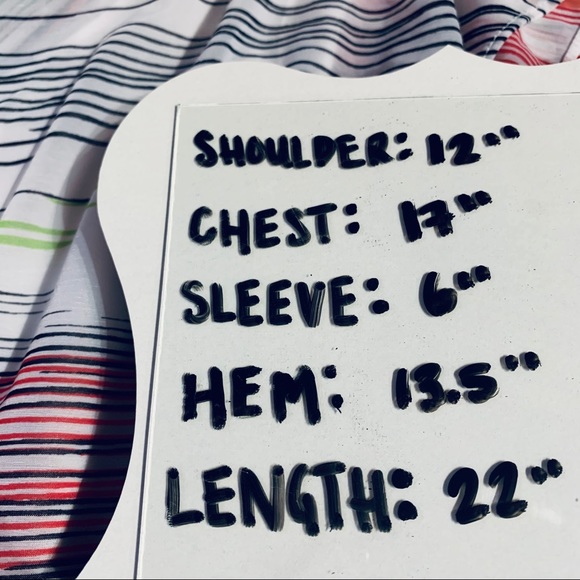 SHOULDER: 12"
CHEST: 17"
SLEEVE: 6"
HEM: 13.5"
LENGTH: 22"